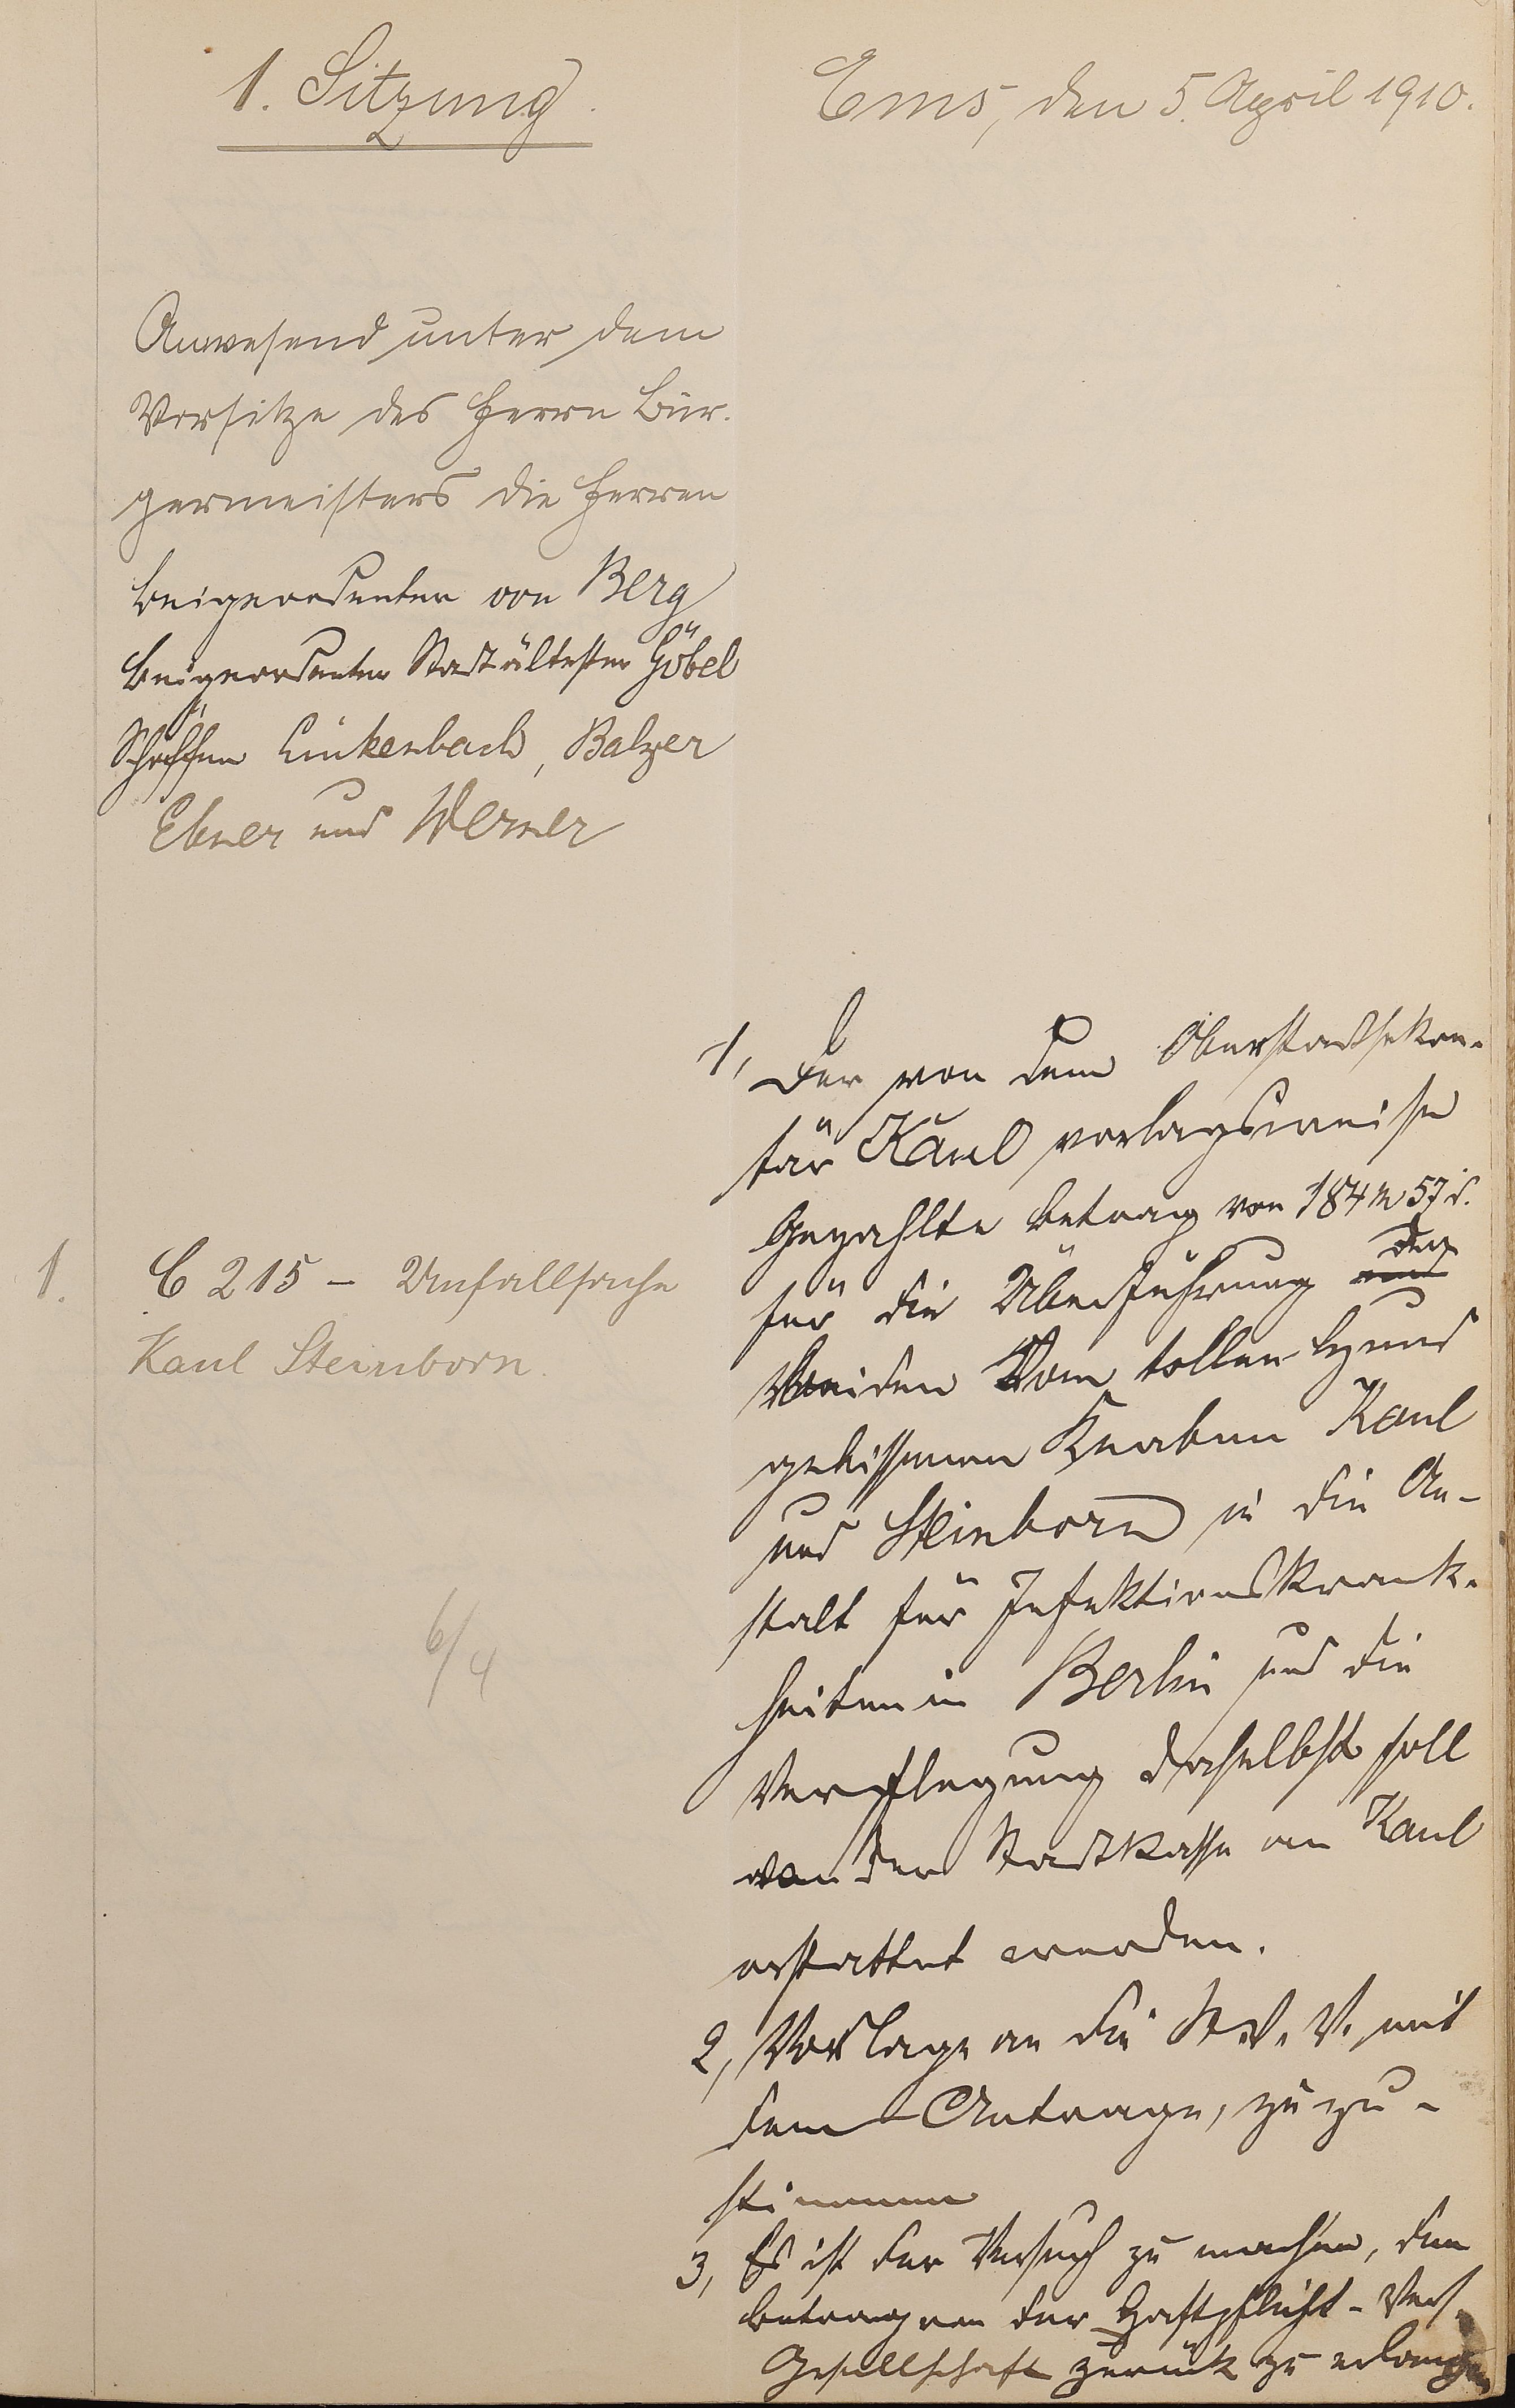 1. Sitzung.
Ems, den 5. April 1910.
Anwesend unter dem
Vorsitze des Herrn Bür-
germeisters die Herren
Beigeordneter von Berg
Beigeordneter Stadtältester Göbel
Schöffen Linkenbach, Balzer
Ebner und Werner
1. C 215 - Unfallsache
Kaul Steinborn.
6/4
1, Der von dem Oberstadtsekre-
tär Kaul vorlagsweise
Gezahlte Betrag von 184 M 57 d.
für die Überführung der
beiden Vom tollen Hund
gebissenen Knaben Kaul
und Steinborn in die An-
stalt für Infektionskrank-
heiten in Berlin und die
Verpflegung daselbst soll
von der Stadtkasse an Kaul
erstattet werden.
2, Vorlage an die St. V. V. mit
dem Antrage, zu zu-
stimmen
3, Es ist der Versuch zu machen, den
Betrag von der Haftpflicht-Vers.
Gesellschaft zurück zu erlangen